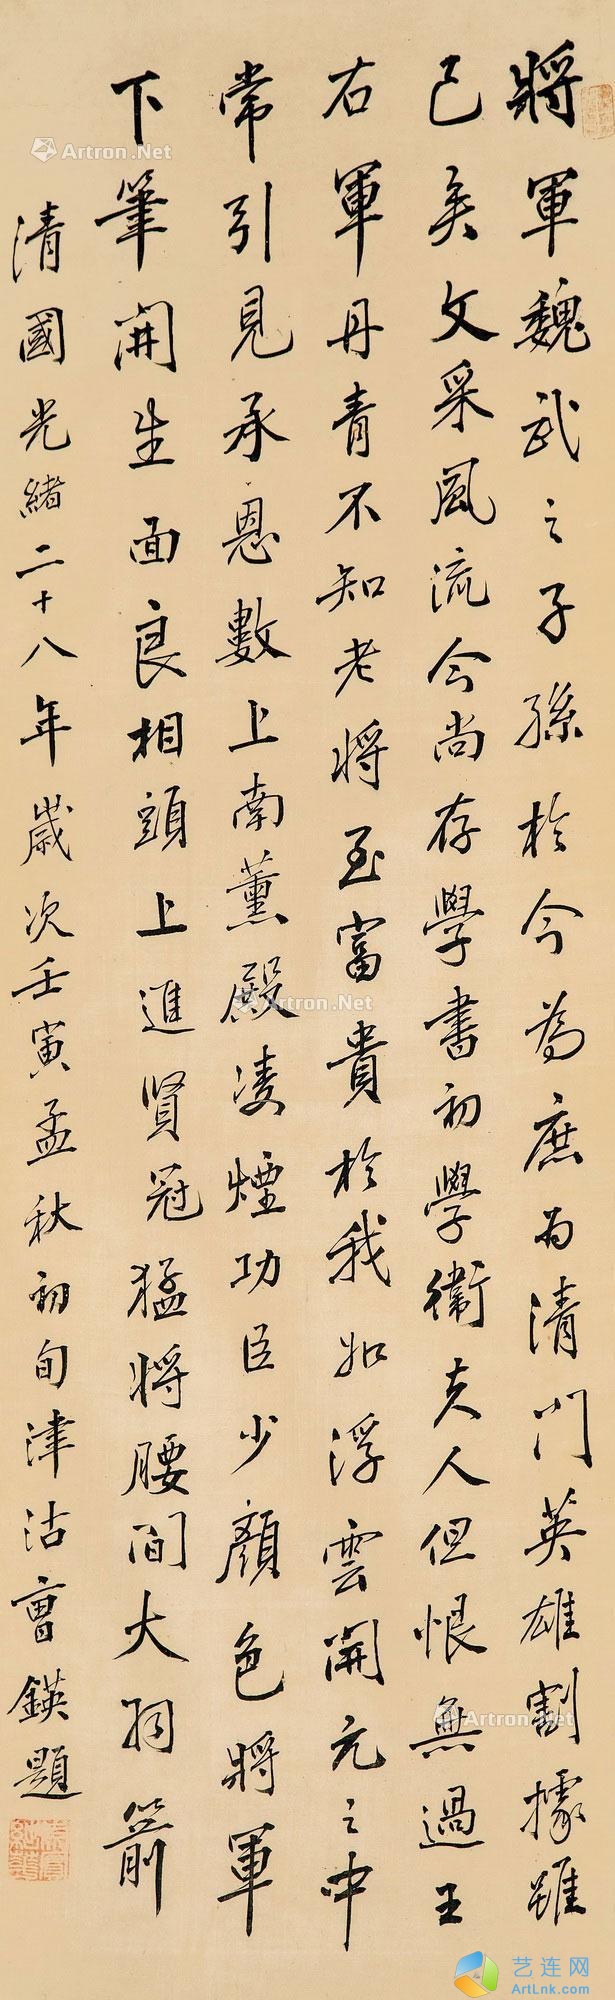 將軍魏武之子孫於今為庶為清門英雄割據雖
已矣文采風流今尚存學書初學衛夫人但恨無過王
右軍丹青不知老將至富貴於我如浮雲開元之中
常引見承恩數上南薰殿凌煙功臣少顏色將軍
下筆開生面良相頭上進賢冠猛將腰間大羽箭
清國光緒二十八年歲次壬寅孟秋初旬津沽曹鍈題
Artron.Net
Artron.Net
Artron.Net
艺连网
ArtLnk.com